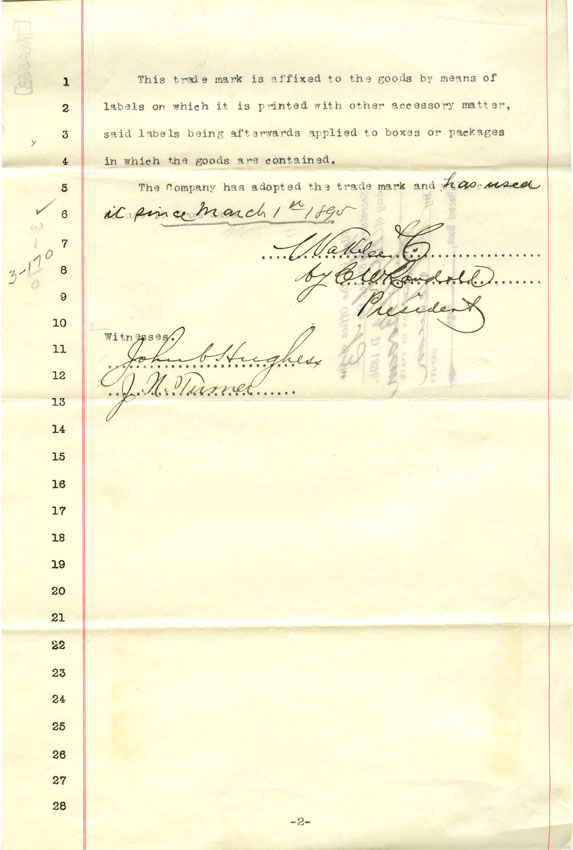 1 This trade mark is affixed to the goods by means of
2 labels on which it is printed with other accessory matter,
3 said labels being afterwards applied to boxes or packages
4 in which the goods are contained.
5 The Company has adopted the trade mark and has used
6 it since March 1st 1895
7
8 by
9 President
3-170
10
Witnesses.
11 John C Hughes
12 J. N. Turner
13
14
15
16
17
18
19
20
21
22
23
24
25
26
27
28
-2-